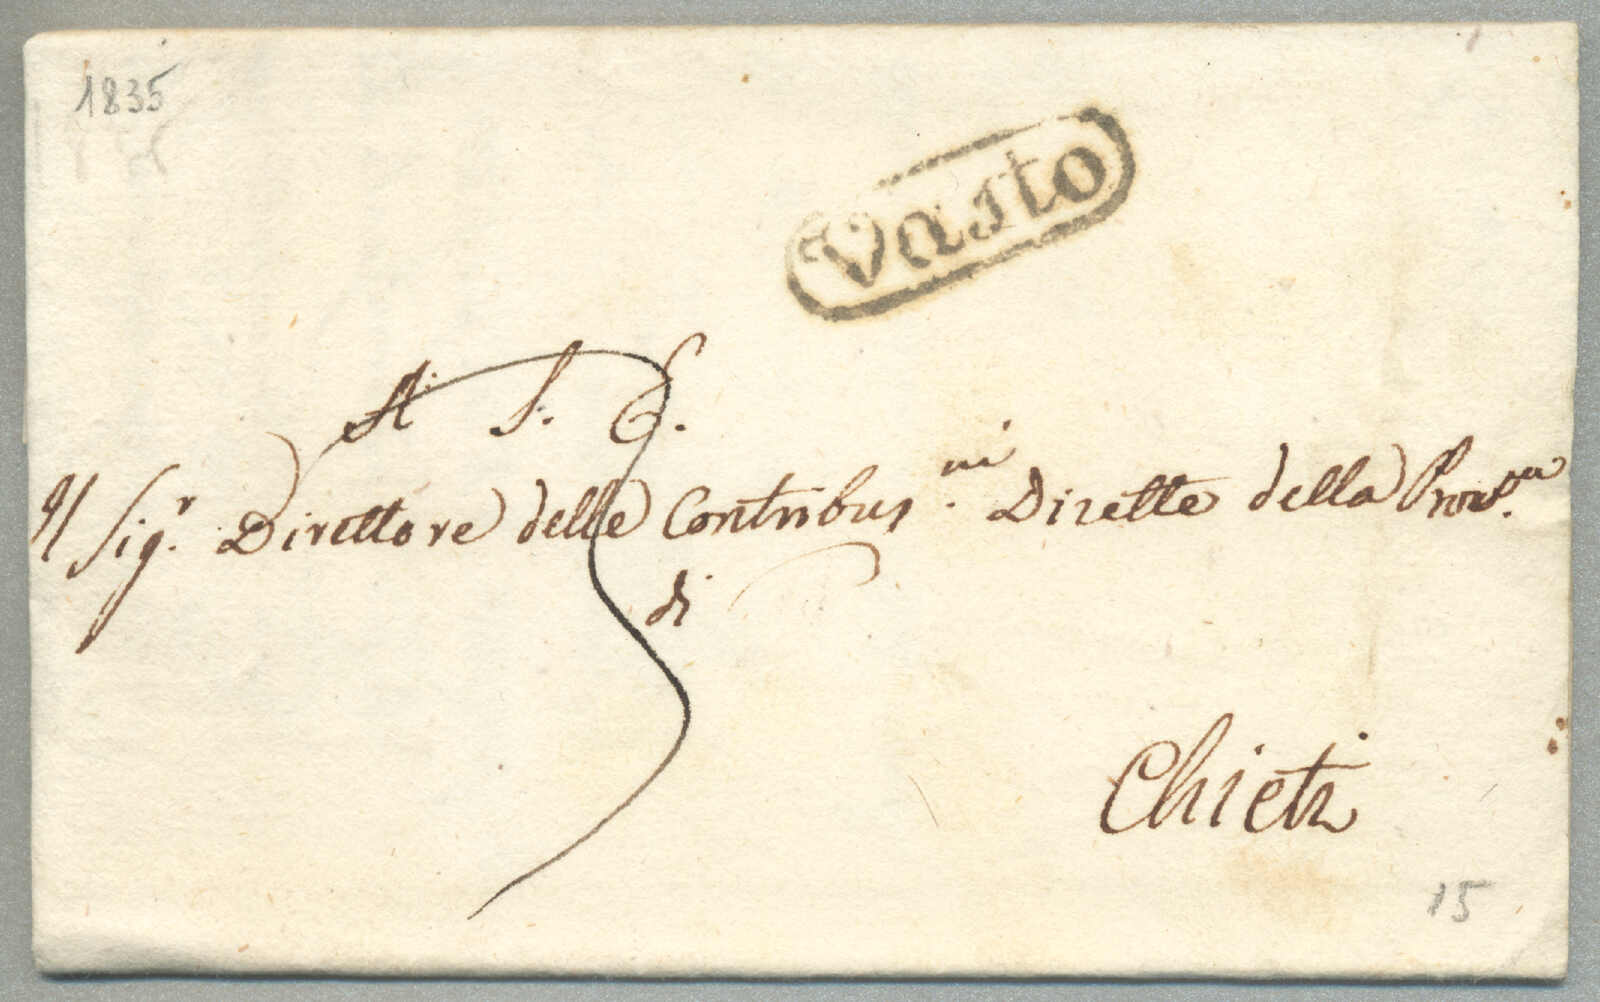 1835
Vasto
A S. E.
Il Sig.r Direttore delle Contribuz.ni Dirette della Prov.cia
di
Chieti
3
15